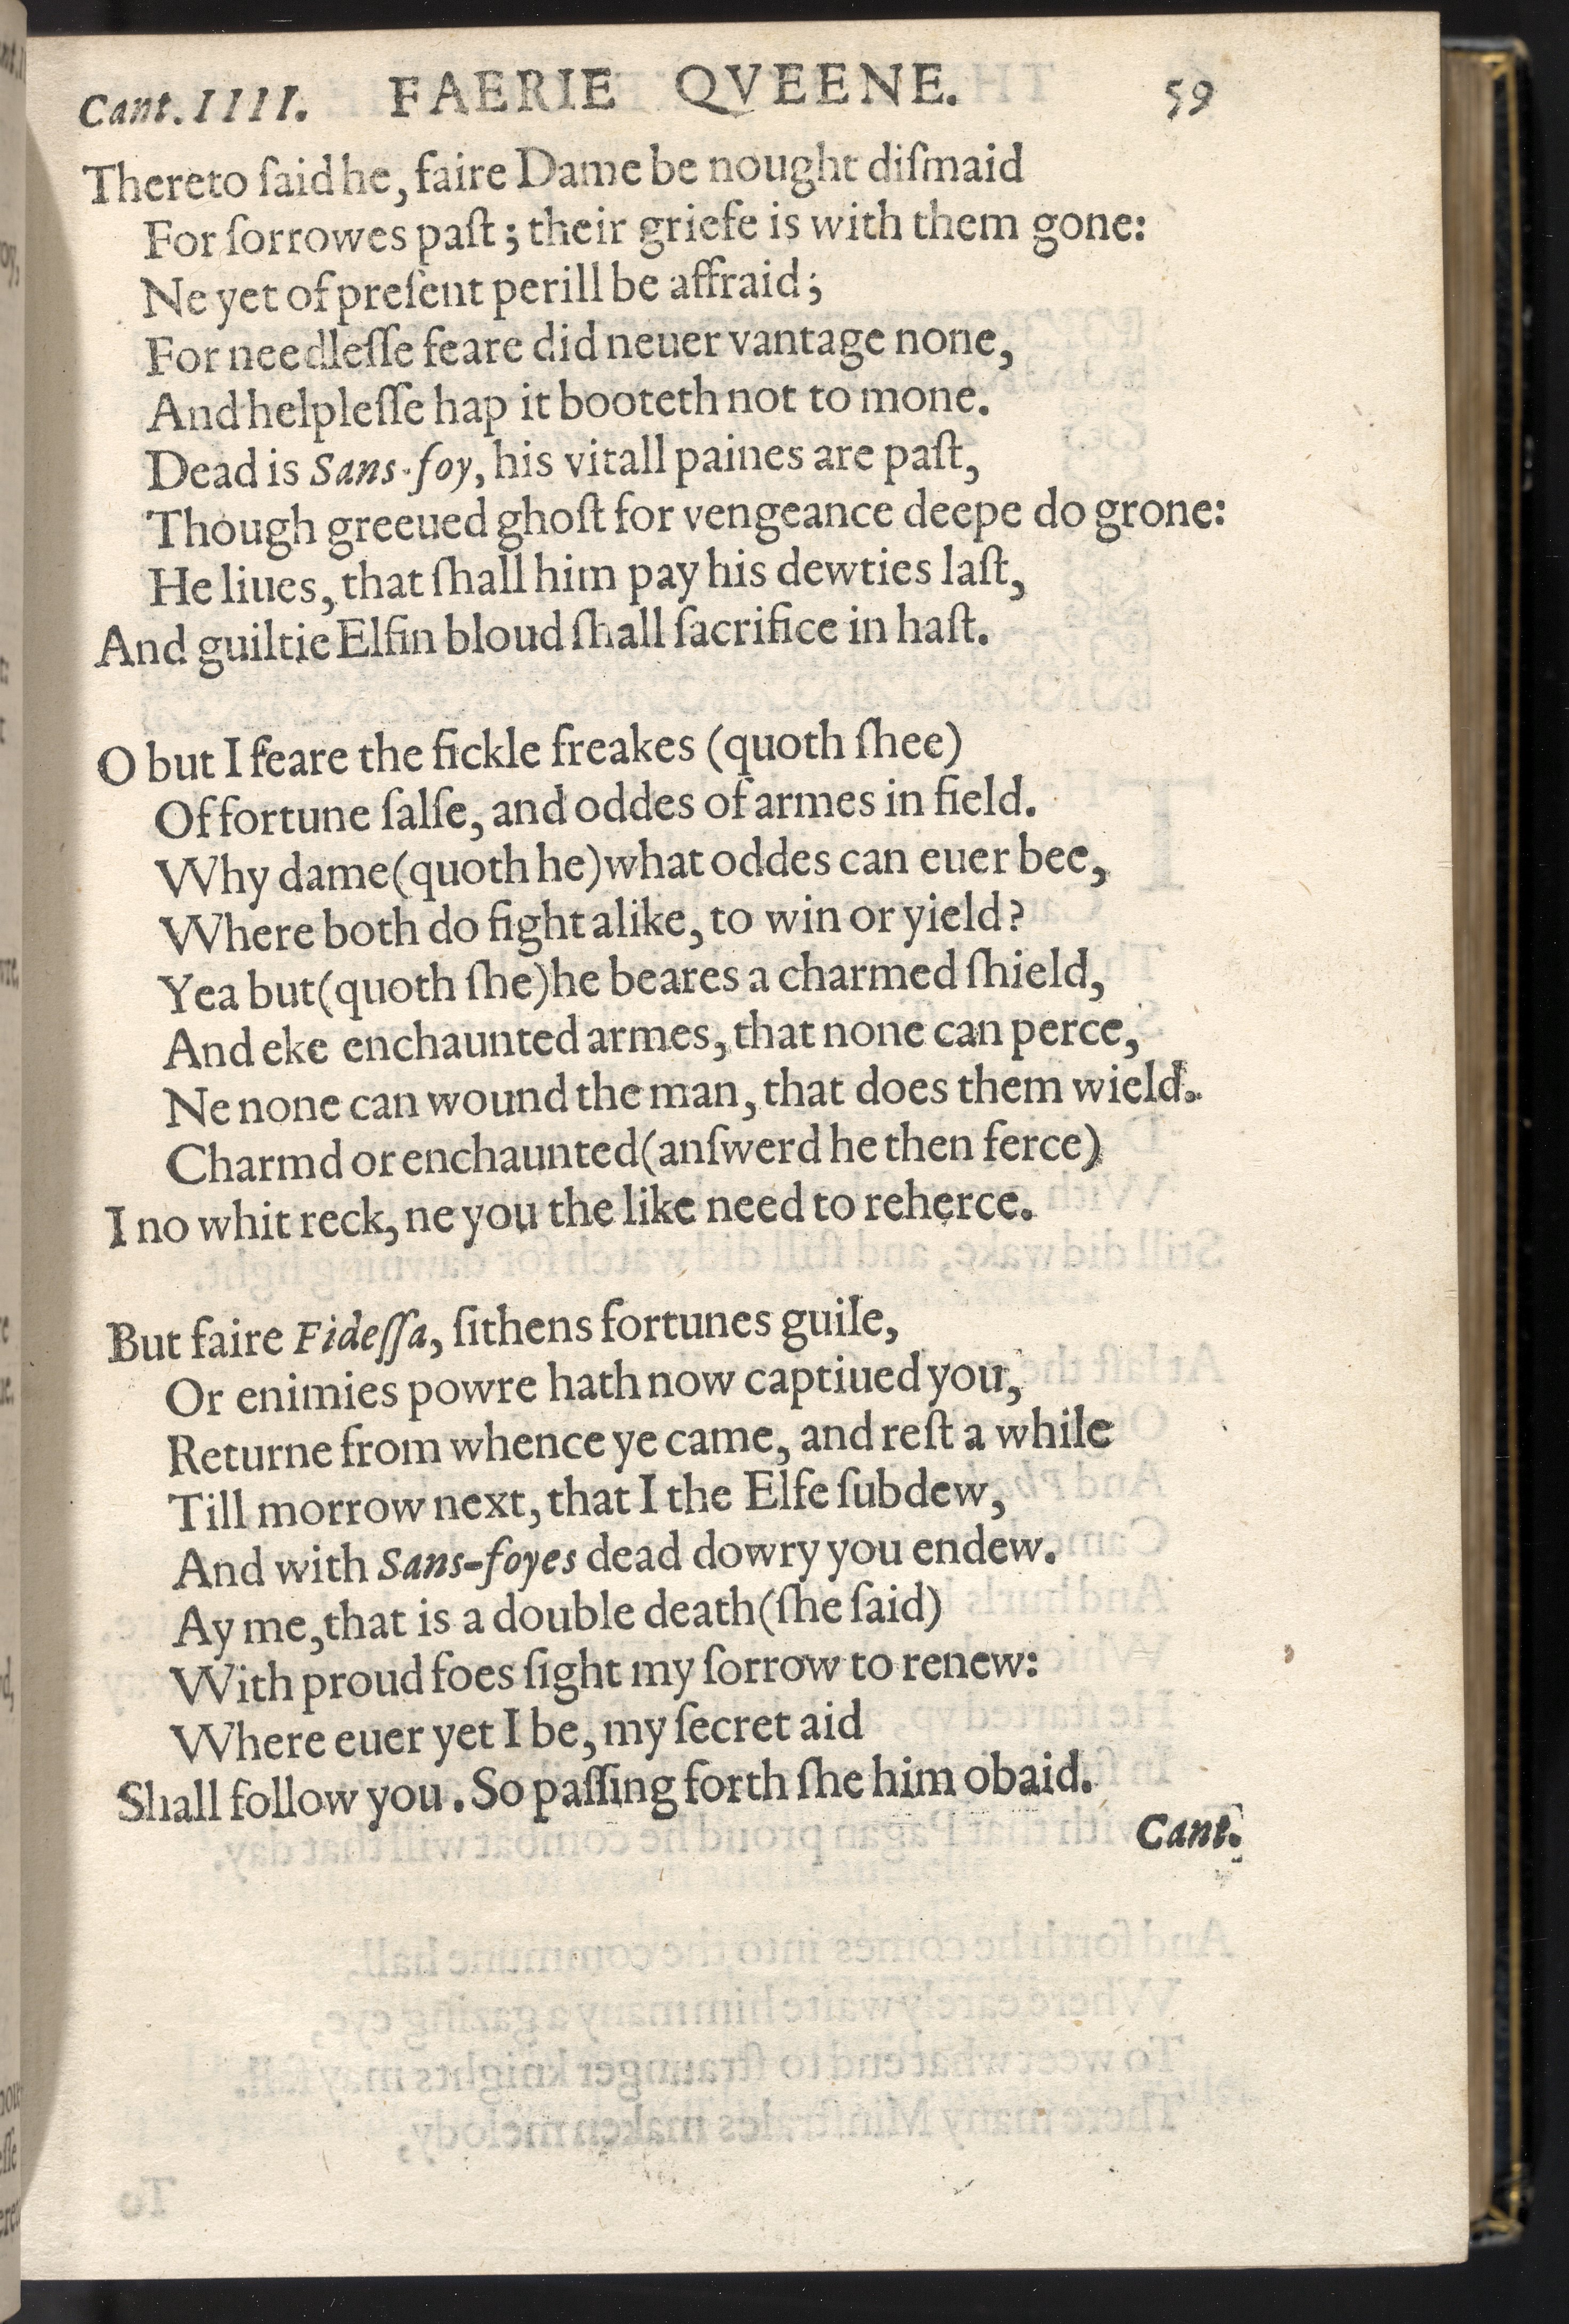 Cant. IIII. FAERIE QVEENE. 59
Thereto ſaid he, faire Dame be nought diſmaid
For ſorrowes paſt; their griefe is with them gone:
Ne yet of preſent perill be affraid;
For needleſſe feare did neuer vantage none,
And helpleſſe hap it booteth not to mone.
Dead is Sans-foy, his vitall paines are paſt,
Though greeued ghoſt for vengeance deepe do grone:
He liues, that ſhall him pay his dewties laſt,
And guiltie Elfin bloud ſhall ſacrifice in haſt.
O but I feare the fickle freakes (quoth ſhee)
Of fortune ſalſe, and oddes of armes in field.
Why dame (quoth he) what oddes can euer bee,
Where both do fight alike, to win or yield?
Yea but (quoth ſhe) he beares a charmed ſhield,
And eke enchaunted armes, that none can perce,
Ne none can wound the man, that does them wield.
Charmd or enchaunted (anſwerd he then ferce)
I no whit reck, ne you the like need to reherce.
But faire Fideſſa, ſithens fortunes guile,
Or enimies powre hath now captiued you,
Returne from whence ye came, and reſt a while
Till morrow next, that I the Elfe ſubdew,
And with Sans-foyes dead dowry you endew.
Ay me, that is a double death (ſhe ſaid)
With proud foes ſight my ſorrow to renew:
Where euer yet I be, my ſecret aid
Shall follow you. So paſſing forth ſhe him obaid.
Cant.